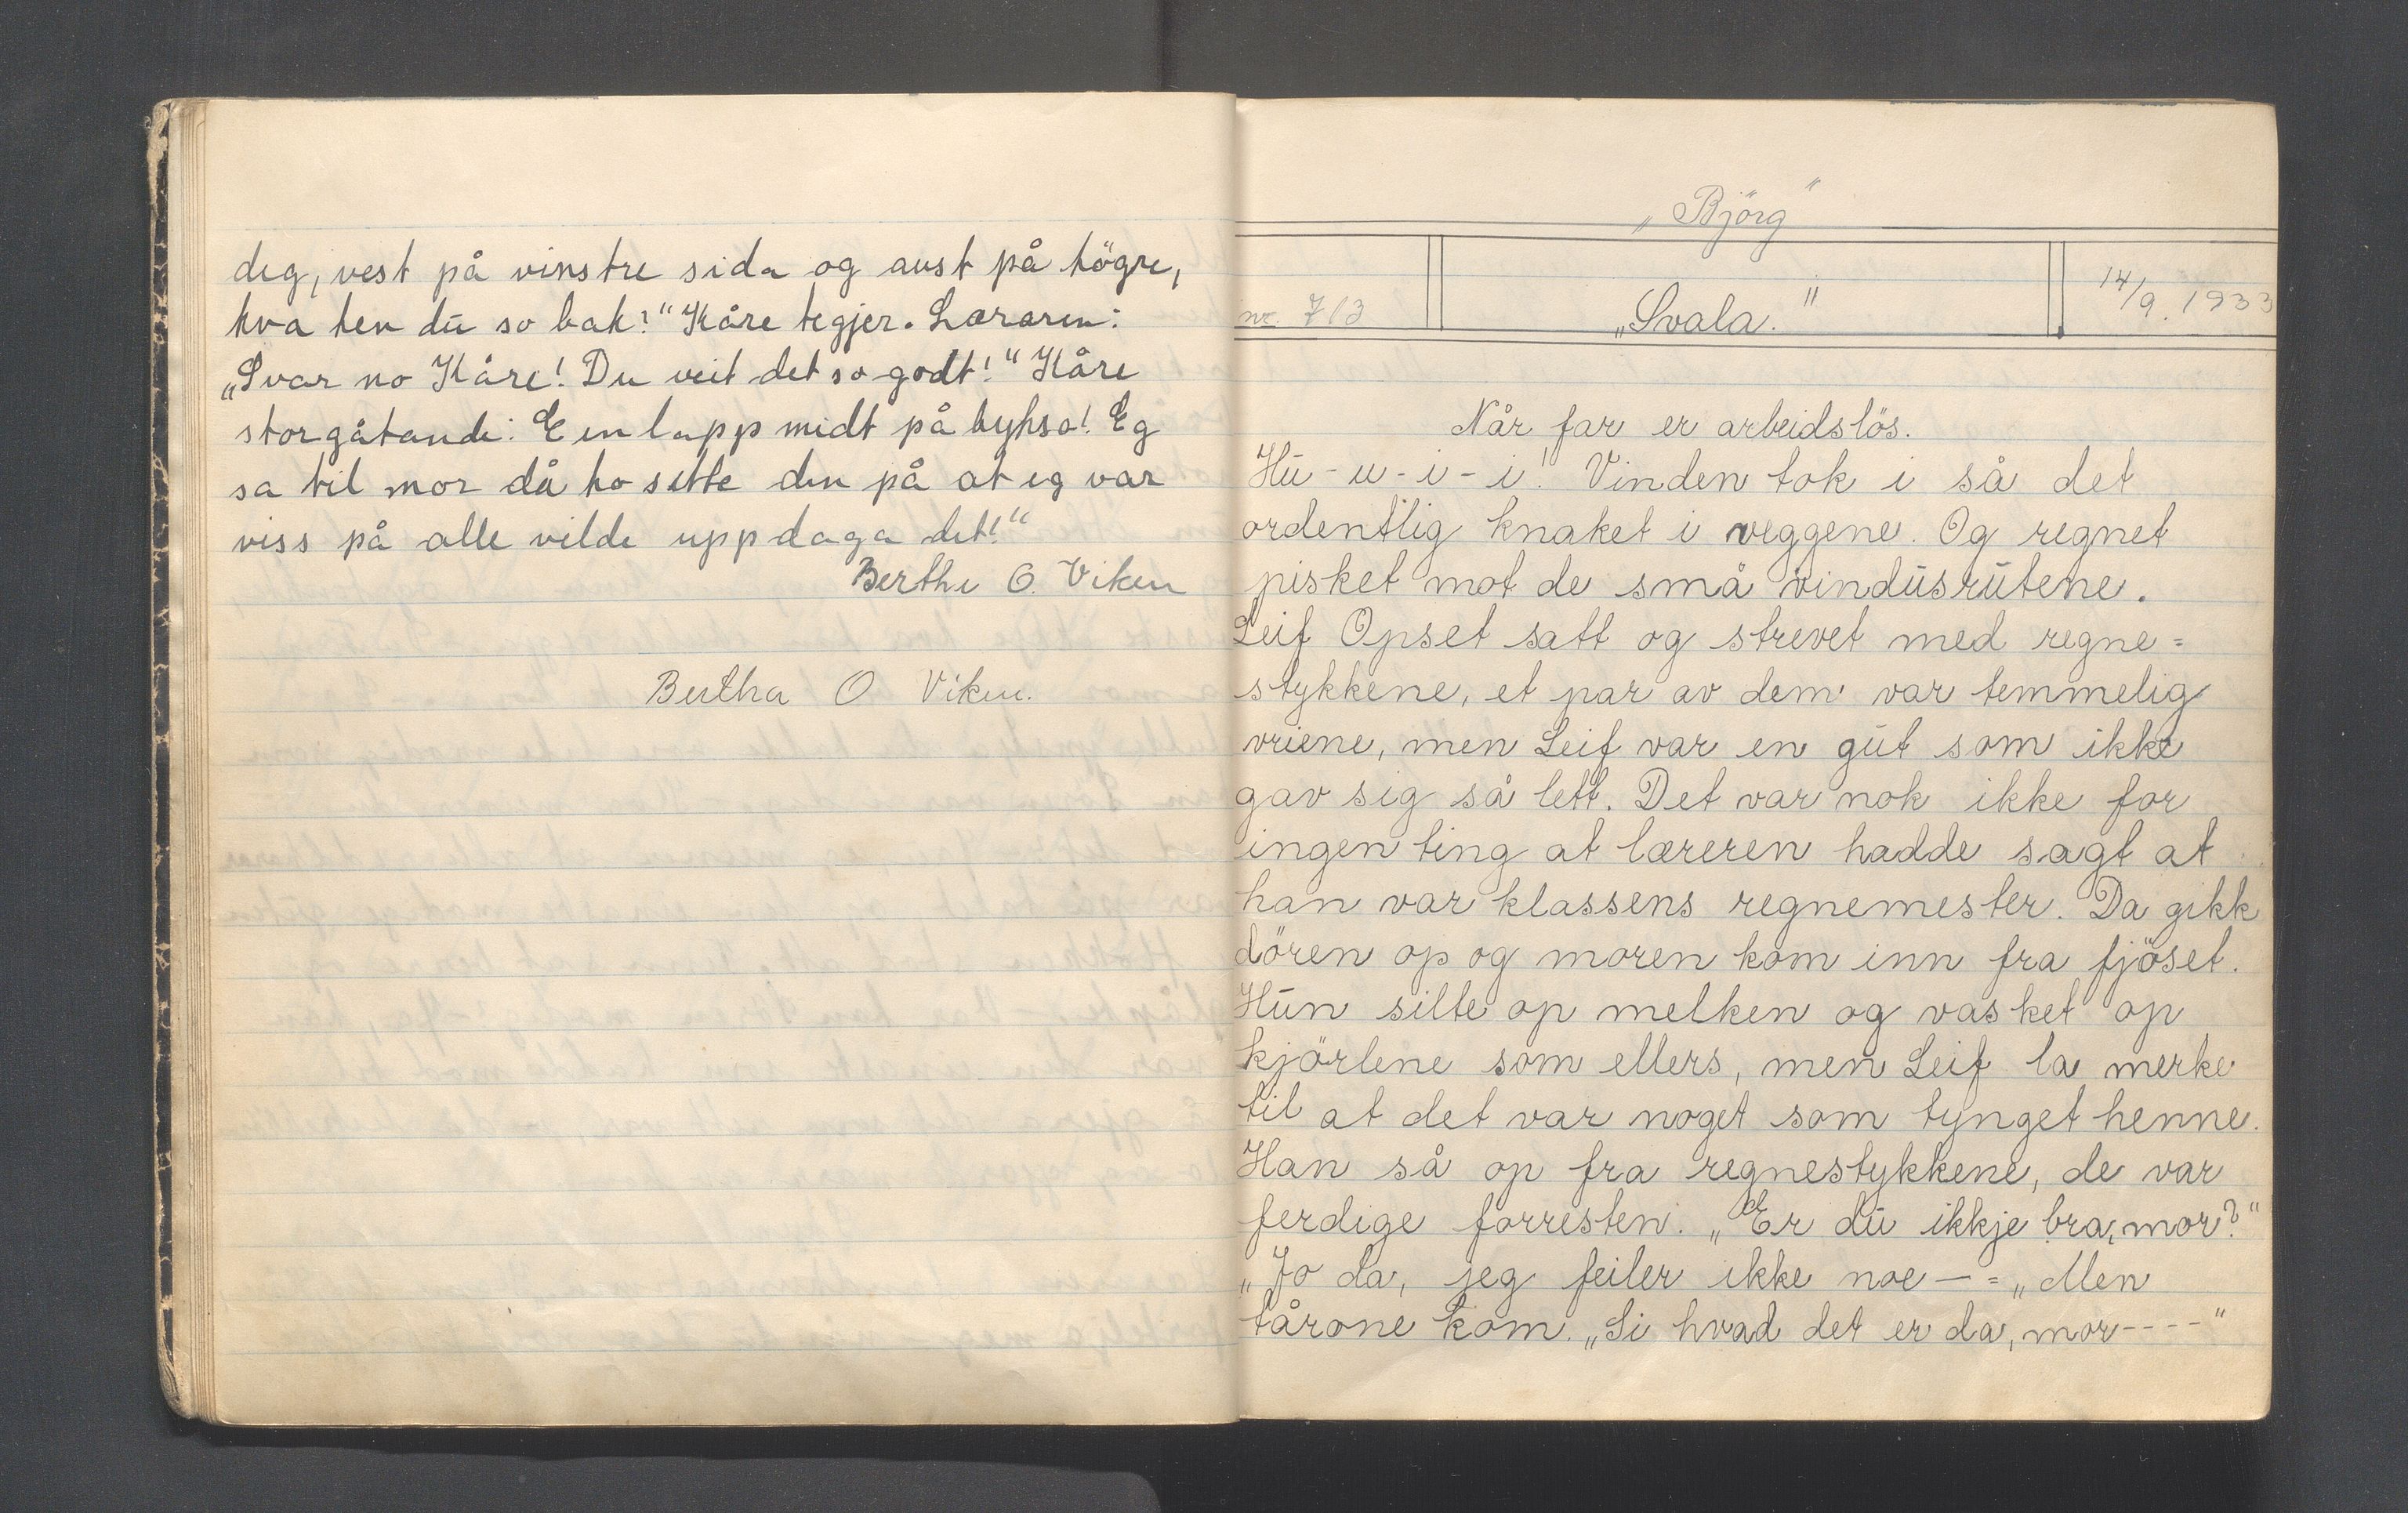 deg, vest på vinstre sida og aust på högre,
kva hev du so bak?" Kåre tegjer. Læraren:
„Svar no Kåre! Du veit det so godt!" Kåre
storgåtande: Ein lapp midt på buksa! Eg
sa til mor då ho sette den på at eg var
viss på alle vilde uppdaga det!"
Berthe O. Viken
Bertha O Viken.
„Björg"
nr. 7/3
„Svala."
14/9. 1933
Når far er arbeidslös.
Hu-u-i-i! Vinden tok i så det
ordentlig knaket i veggene. Og regnet
pisket mot de små vindusrutene.
Leif Opset satt og strevet med regne=
stykkene, et par av dem var temmelig
vriene, men Leif var en gut som ikke
gav sig så lett. Det var nok ikke for
ingen ting at læreren hadde sagt at
han var klassens regnemester. Da gikk
dören op og moren kom inn fra fjöset.
Hun silte op melken og vasket op
kjörlene som ellers, men Leif la merke
til at det var noget som tynget henne.
Han så op fra regnestykkene, de var
ferdige forresten. „Er du ikkje bra, mor?"
„Jo da, jeg feiler ikke noe—= „Men
tårone kom. „Si hvad det er da, mor----"